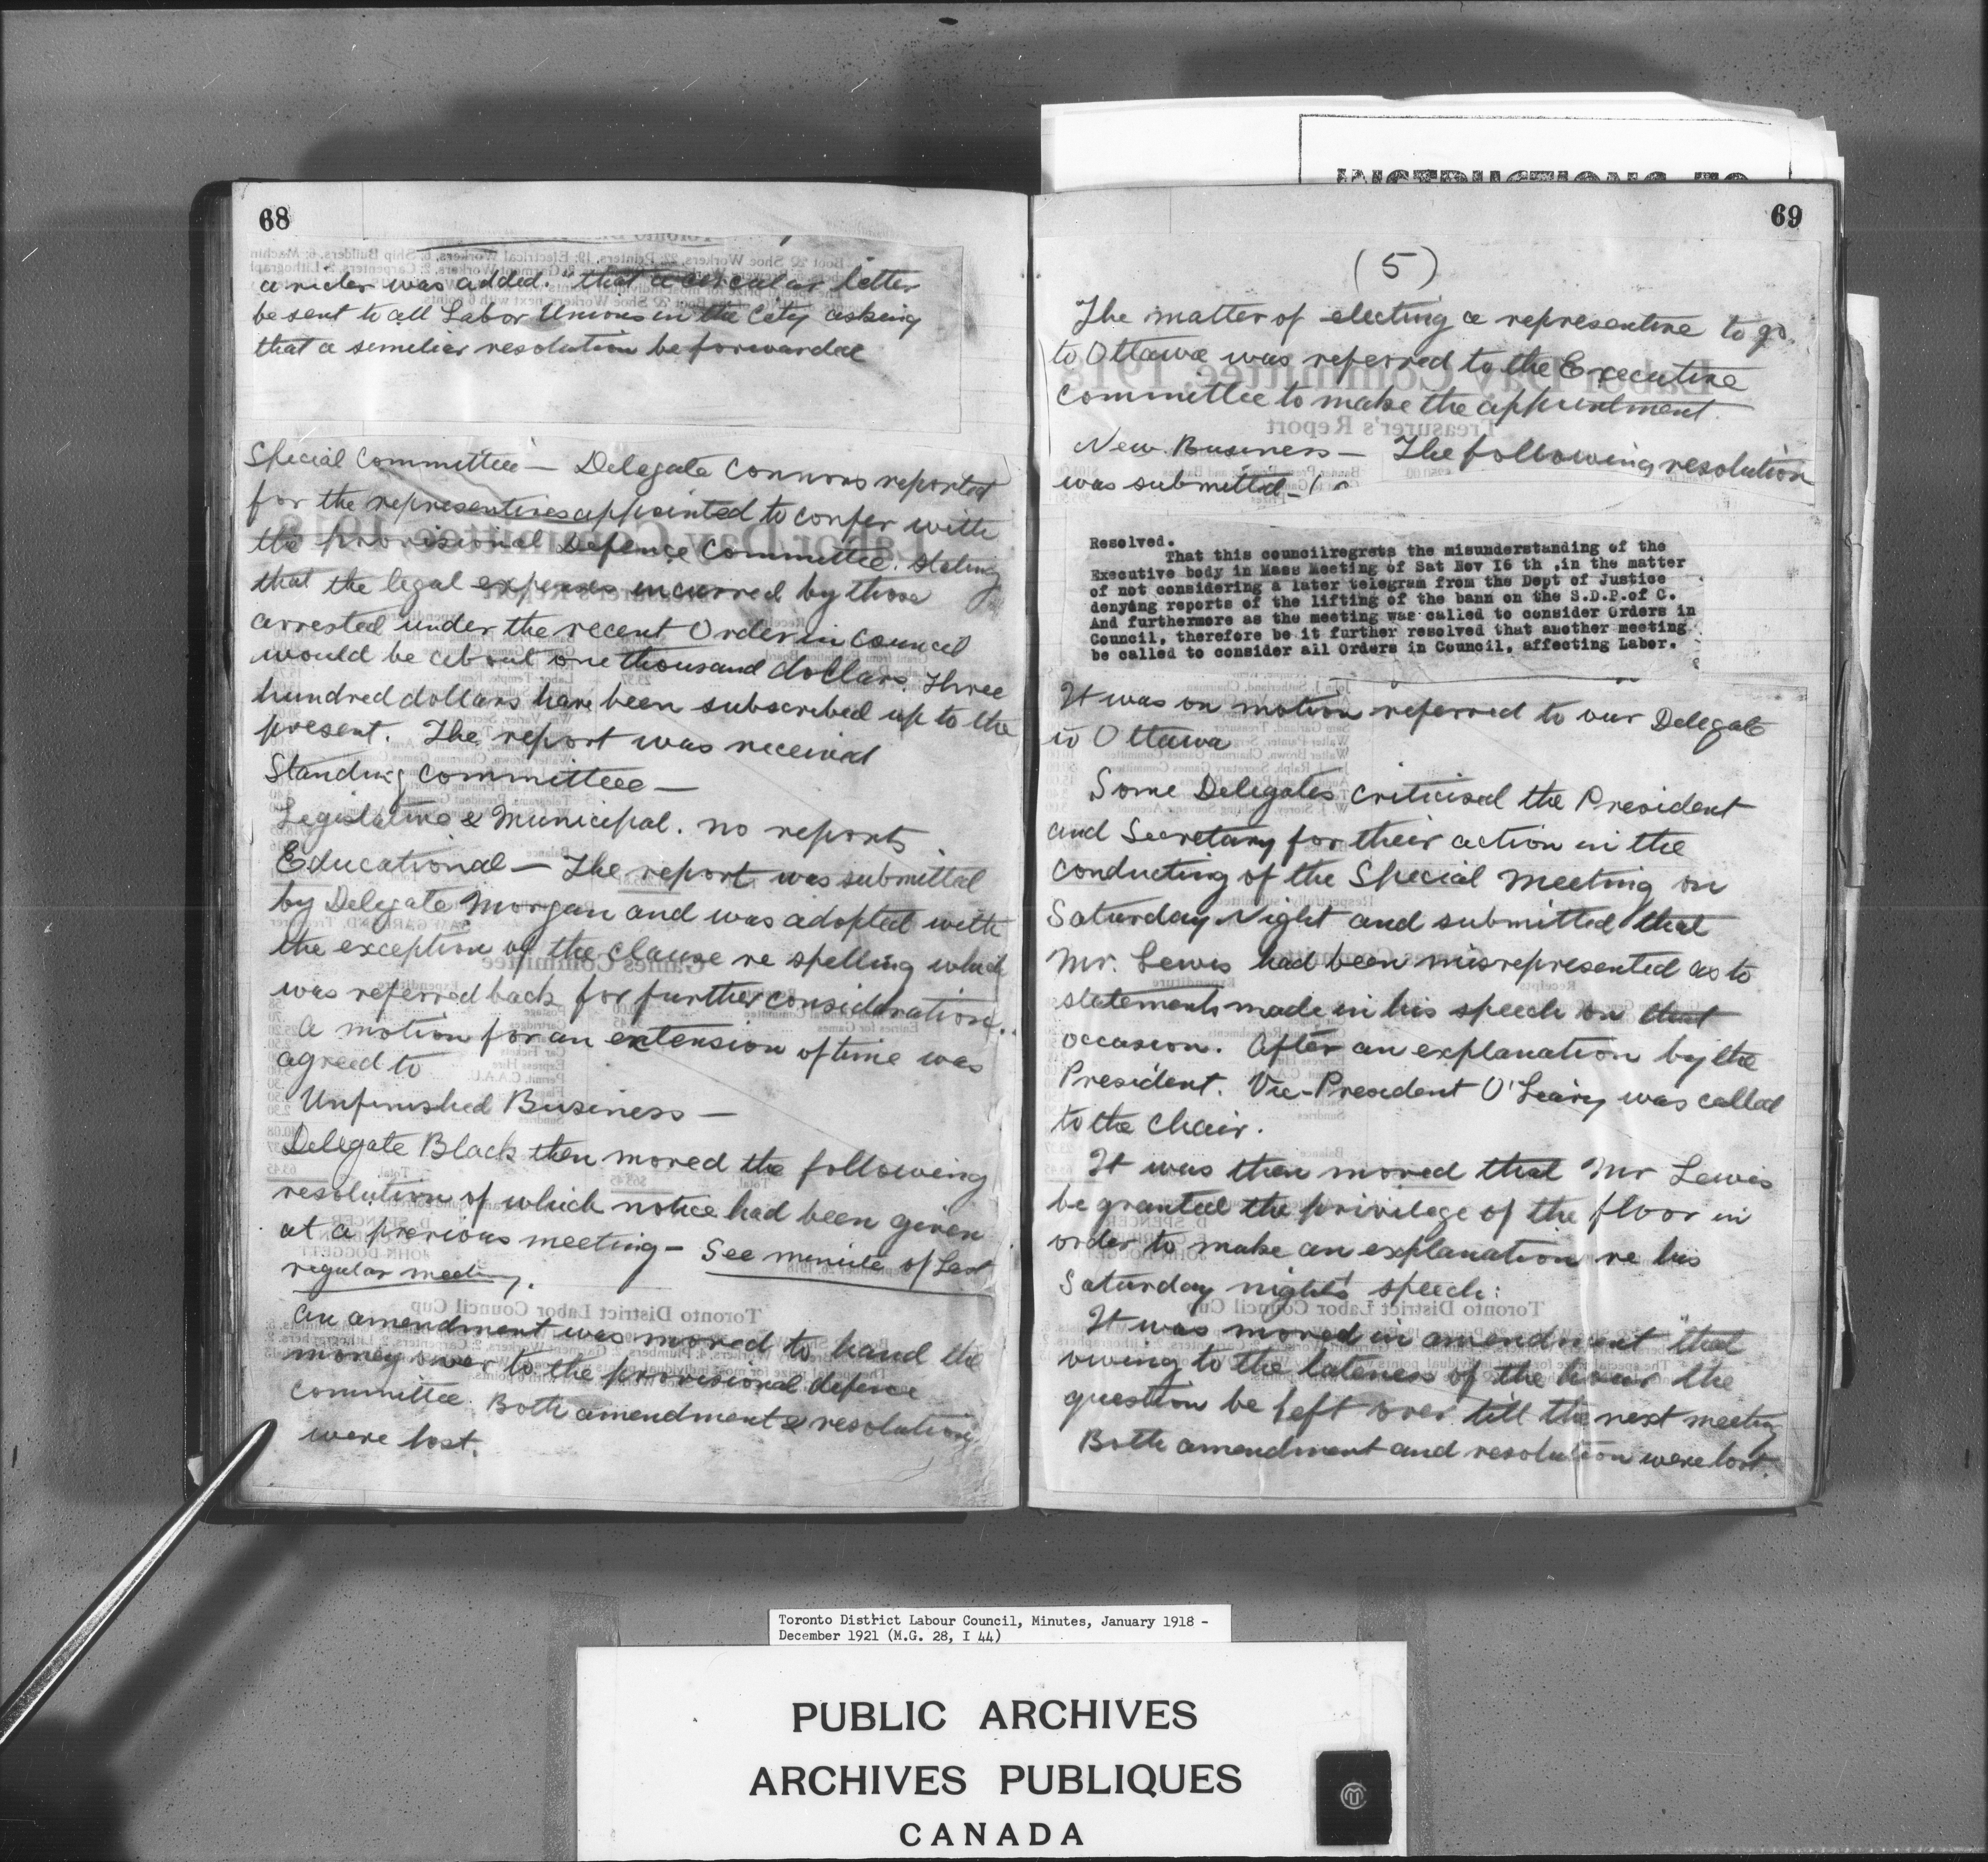 68
a rider was added. "that a circular letter
be sent to all Labor Unions in the City asking
that a similiar resolution be forwarded
Special Committee — Delegate Connors reported
for the representives appointed to confer with
the provisional Defence Committee. Stating
that the legal expenses incurred by those
arrested under the recent Order in Council
would be about one thousand dollars. Three
hundred dollars have been subscribed up to the
present. The report was received
Standing Committees —
Legislative & Municipal. no reports
Educational — The report was submitted
by Delegate Morgan and was adopted with
the exception of the clause re spelling which
was referred back for further consideration.
A motion for an extension of time was
agreed to
Unfinished Business —
Delegate Black then moved the following
resolution of which notice had been given
at a previous meeting — See minute of Last
regular meeting.
An amendment was moved to hand the
money over to the provisional defence
committee. Both amendment & resolution
were lost.
69
(5)
The matter of electing a representive to go
to Ottawa was referred to the Executive
Committee to make the appointment.
New Business — The following resolution
was submitted —
Resolved.
That this councilregrets the misunderstanding of the
Executive body in Mass Meeting of Sat Nov I6 th ,in the matter
of not considering a later telegram from the Dept of Justice
denying reports of the lifting of the bann on the S.D.P.of C.
And furthermore as the meeting was called to consider Orders in
Council, therefore be it further resolved that another meeting
be called to consider all Orders in Council, affecting Labor.
It was on motion referred to our Delegate
to Ottawa
Some Delegates criticised the President
and Secretary for their action in the
conducting of the Special meeting on
Saturday Night and submitted that
Mr. Lewis had been misrepresented as to
statements made in his speech on that
occasion. After an explanation by the
President. Vice-President O'Leary was called
to the Chair.
It was then moved that Mr Lewis
be granted the privilege of the floor in
order to make an explanation re his
Saturday night's speech:
It was moved in amendment "that
owing to the lateness of the hour the
question be left over till the next meeting
Both amendment and resolution were lost.
INSTRUCTIONS TO
Toronto District Labour Council, Minutes, January 1918 -
December 1921 (M.G. 28, I 44)
PUBLIC ARCHIVES
ARCHIVES PUBLIQUES
CANADA